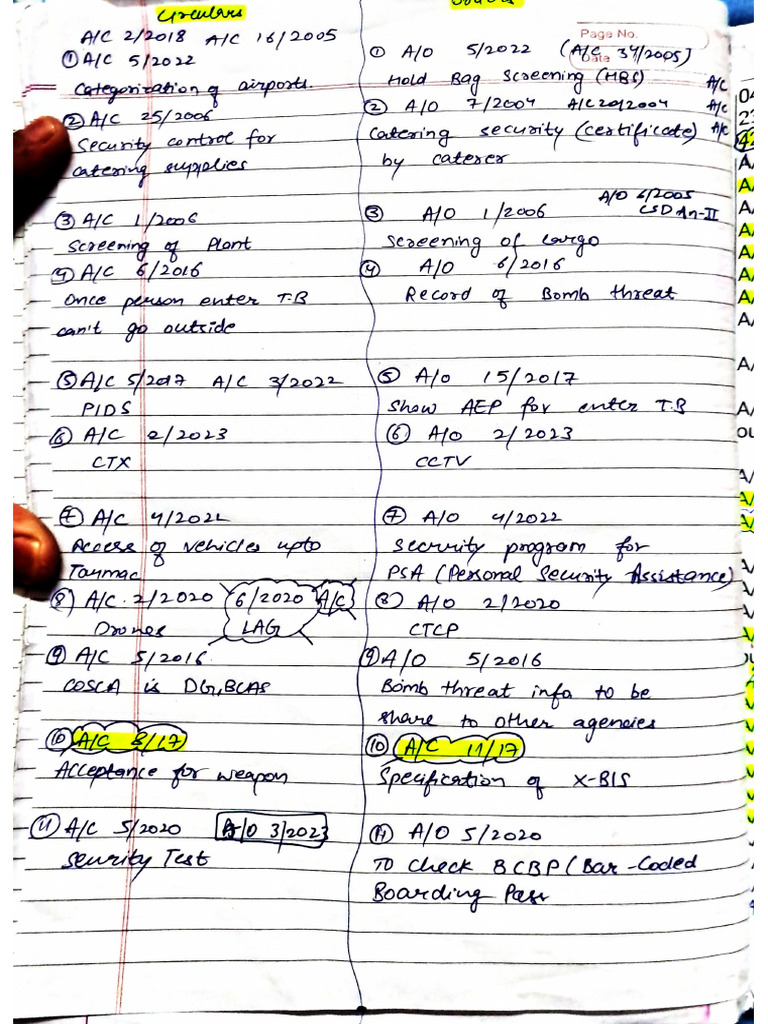 Circulars
A/C 2/2018 A/C 16/2005
① A/C 5/2022
Categorization of airports.
② A/C 25/2006
Security control for
catering supplies
③ A/C 1/2006
Screening of Plant
④ A/C 6/2016
Once person enter T.B
can't go outside
⑤ A/C 5/2017 A/C 3/2022
PIDS
⑥ A/C 2/2023
CTX
⑦ A/C 4/2022
Access of vehicles upto
Tarmac
⑧ A/C 2/2020 6/2020 A/C
Drones LAG
⑨ A/C 5/2016
COSCA is DG, BCAS
⑩ A/C 8/17
Acceptance for weapon
⑪ A/C 5/2020 A/O 3/2023
Security Test
Page No.
Date
① A/O 5/2022 (A/C 34/2005)
Hold Bag Screening (HBS) A/C
② A/O 7/2004 A/C 20/2004 A/C
Catering security (certificate) A/C
by caterer
A/O 6/2005
③ A/O 1/2006 CSD An-II
Screening of cargo
④ A/O 6/2016
Record of Bomb threat
⑤ A/O 15/2017
Show AEP for enter T.B
⑥ A/O 2/2023
CCTV
⑦ A/O 4/2022
Security program for
PSA (Personal Security Assistance)
⑧ A/O 2/2020
CTCP
⑨ A/O 5/2016
Bomb threat info to be
share to other agencies
⑩ A/C 11/17
Specification of X-BIS
⑪ A/O 5/2020
To check BCBP (Bar-Coded
Boarding Pass